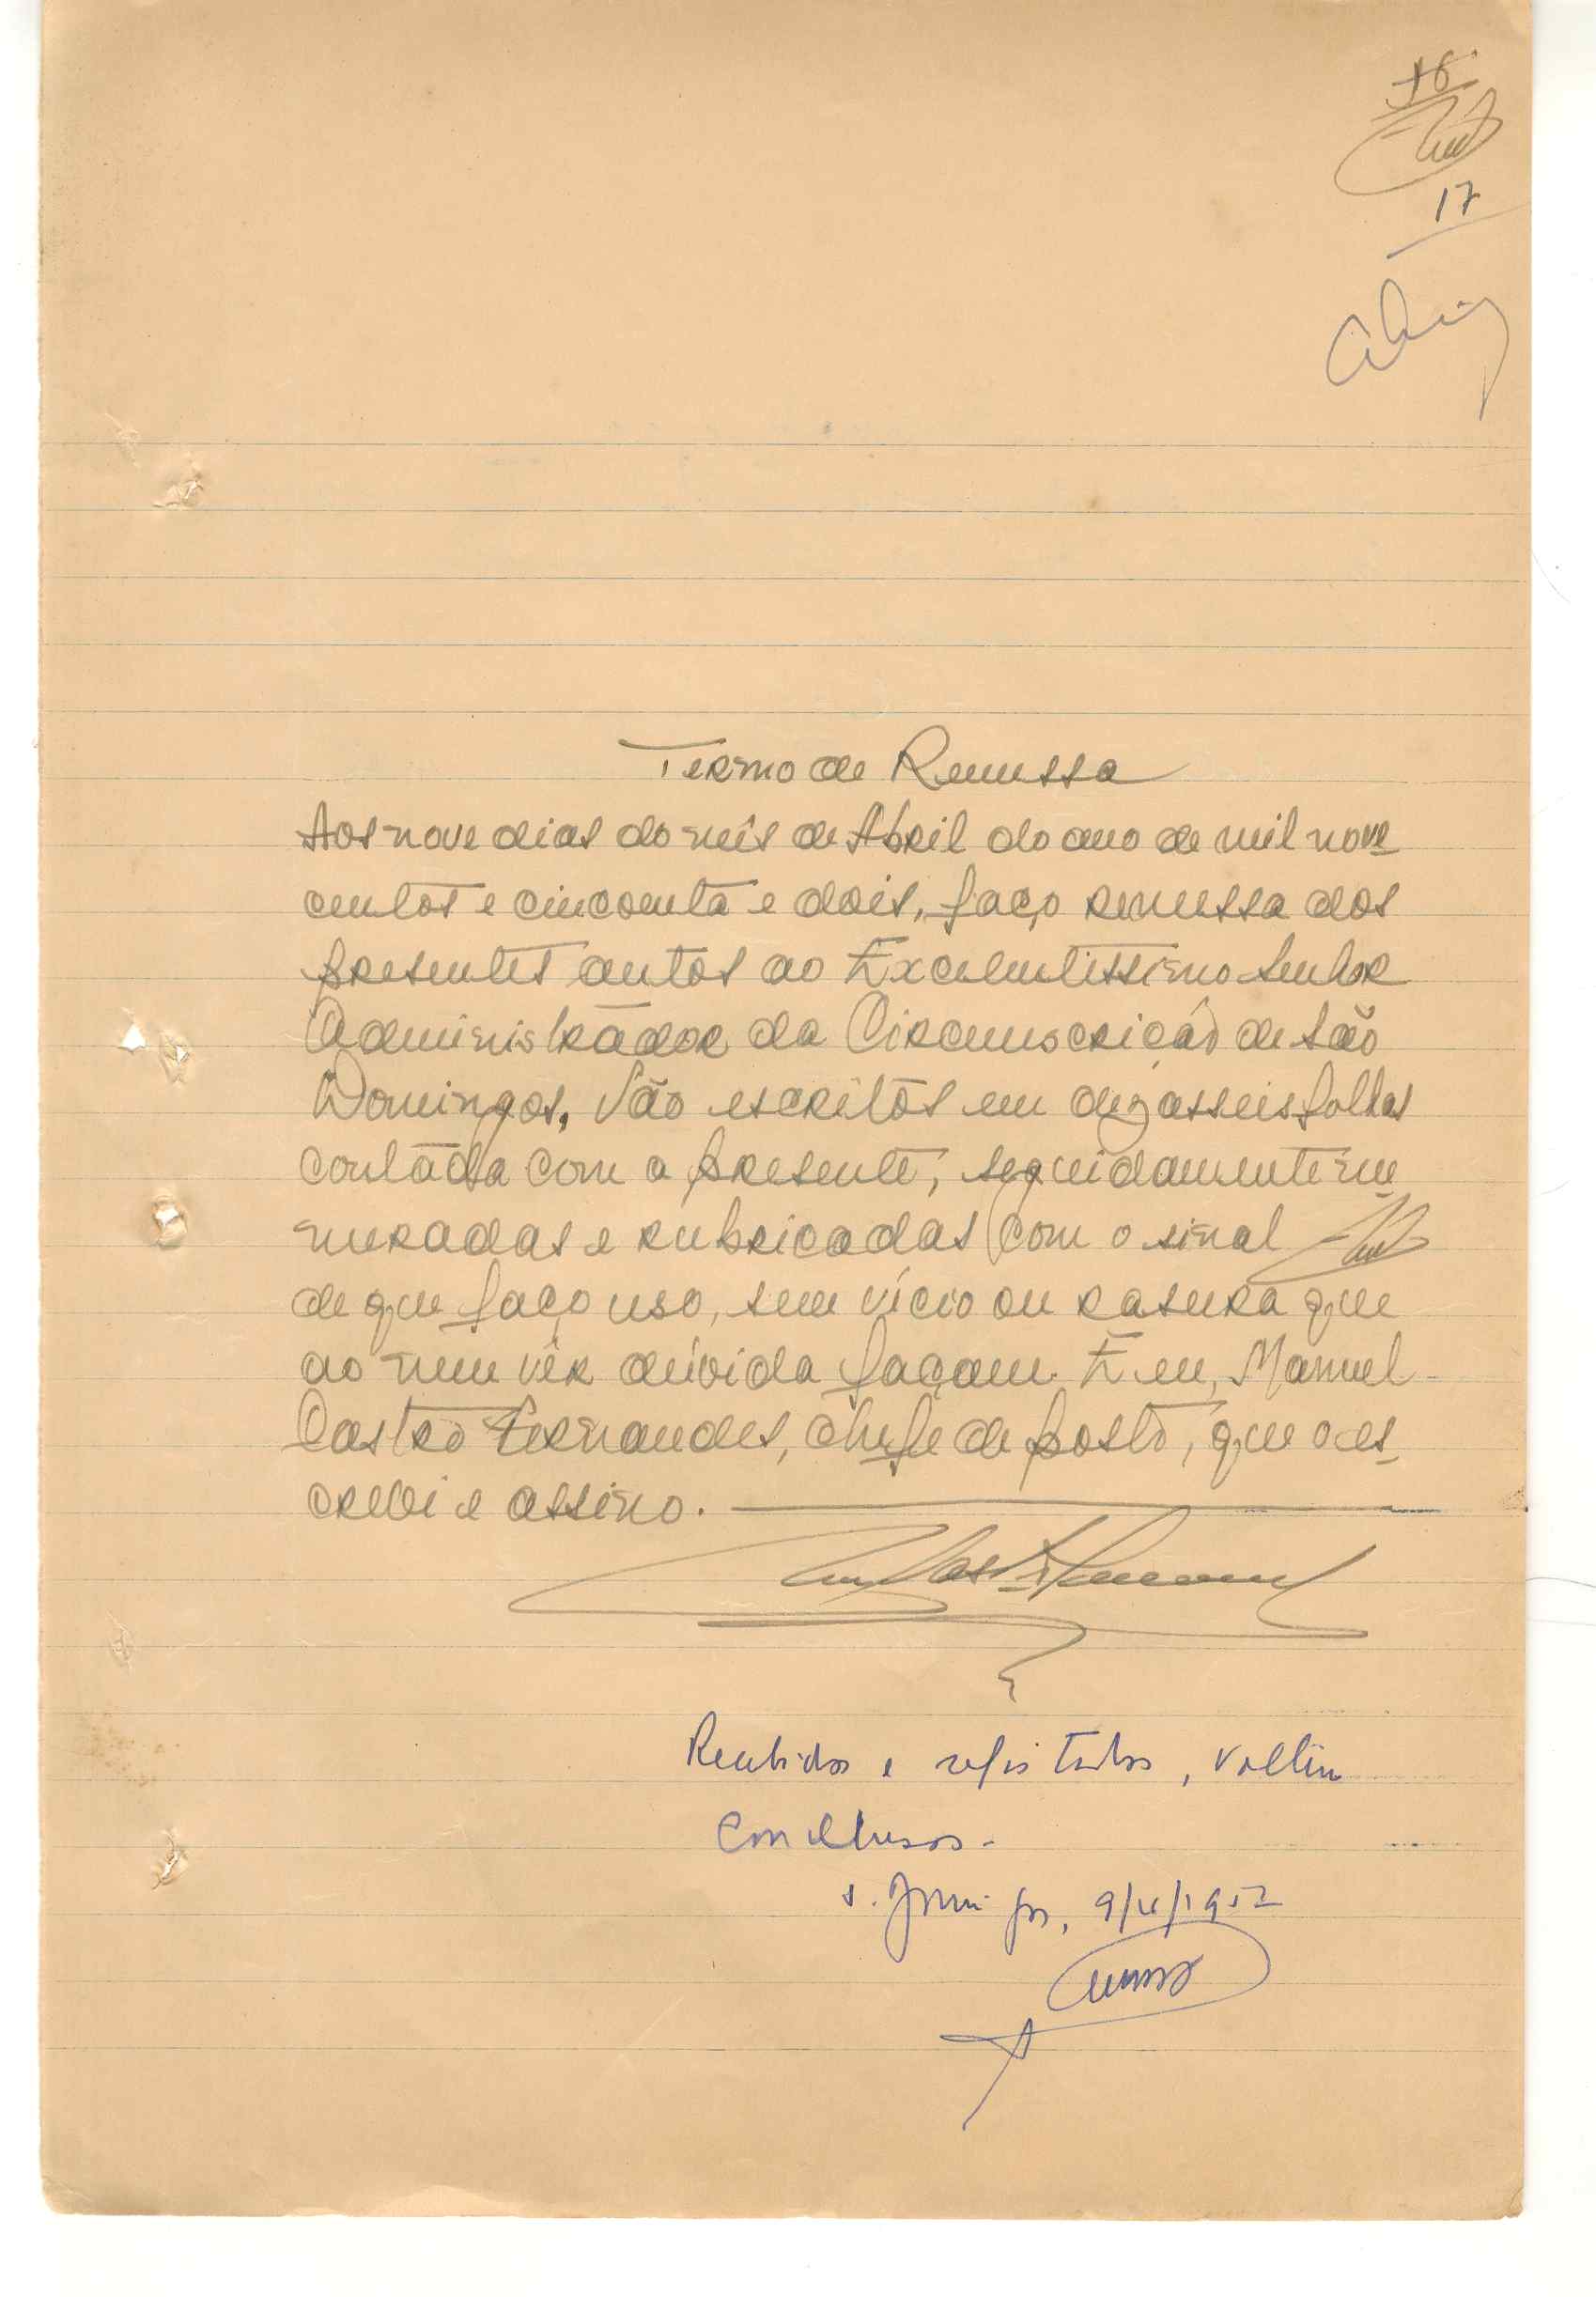 16
17
Termo de Remessa
Aos nove dias do mês de Abril do ano de mil nove
centos e cincoenta e dois, faço remessa dos
presentes autos ao Excelentissimo Senhor
Administrador da Circunscrição de São
Domingos. Vão escritos em dezasseis folhas
contada com a presente, seguidamente nu
meradas e rubricadas com o sinal
de que faço uso, sem vício ou rasura que
ao num vêr dúvida façam. E eu, Manuel
Castro Fernandes, chefe de posto, que o es
crevi e assino.
Recebidos e registados, voltem
conclusos.
S. Domingos, 9/4/1952